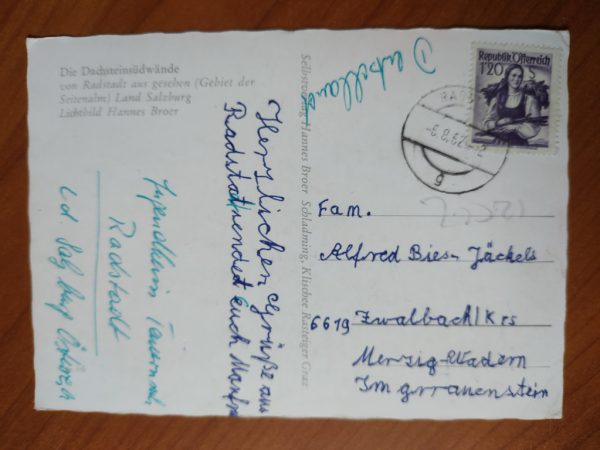 Die Dachsteinsüdwände
von Radstadt aus gesehen (Gebiet der
Seitenalm) Land Salzburg
Lichtbild Hannes Broer
Herzlichen Grüße aus
Radstatt sendet euch Manfred
Jugendheim
Radstadt
Selbstverlag Hannes Broer Schladming, Klischee Rasteiger Graz
Deutschland
Republik Österreich
1'20 S
-6.8.62
g
Fam.
Alfred Bies-Jäckels
6619 Zwalbach/Krs
Merzig-Wadern
Im grrauenstein